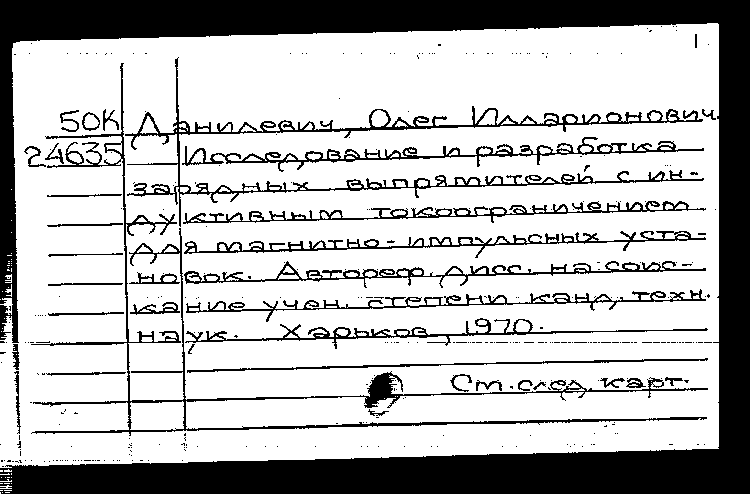 1
50К Данилевич, Олег Илларионович.
24635 Исследование и разработка
зарядных выпрямителей с ин-
дуктивным токоограничением
для магнитно-импульсных уста-
новок. Автореф. дисс. на соис-
кание учен. степени канд. техн.
наук. Харьков, 1970.
См. след. карт.